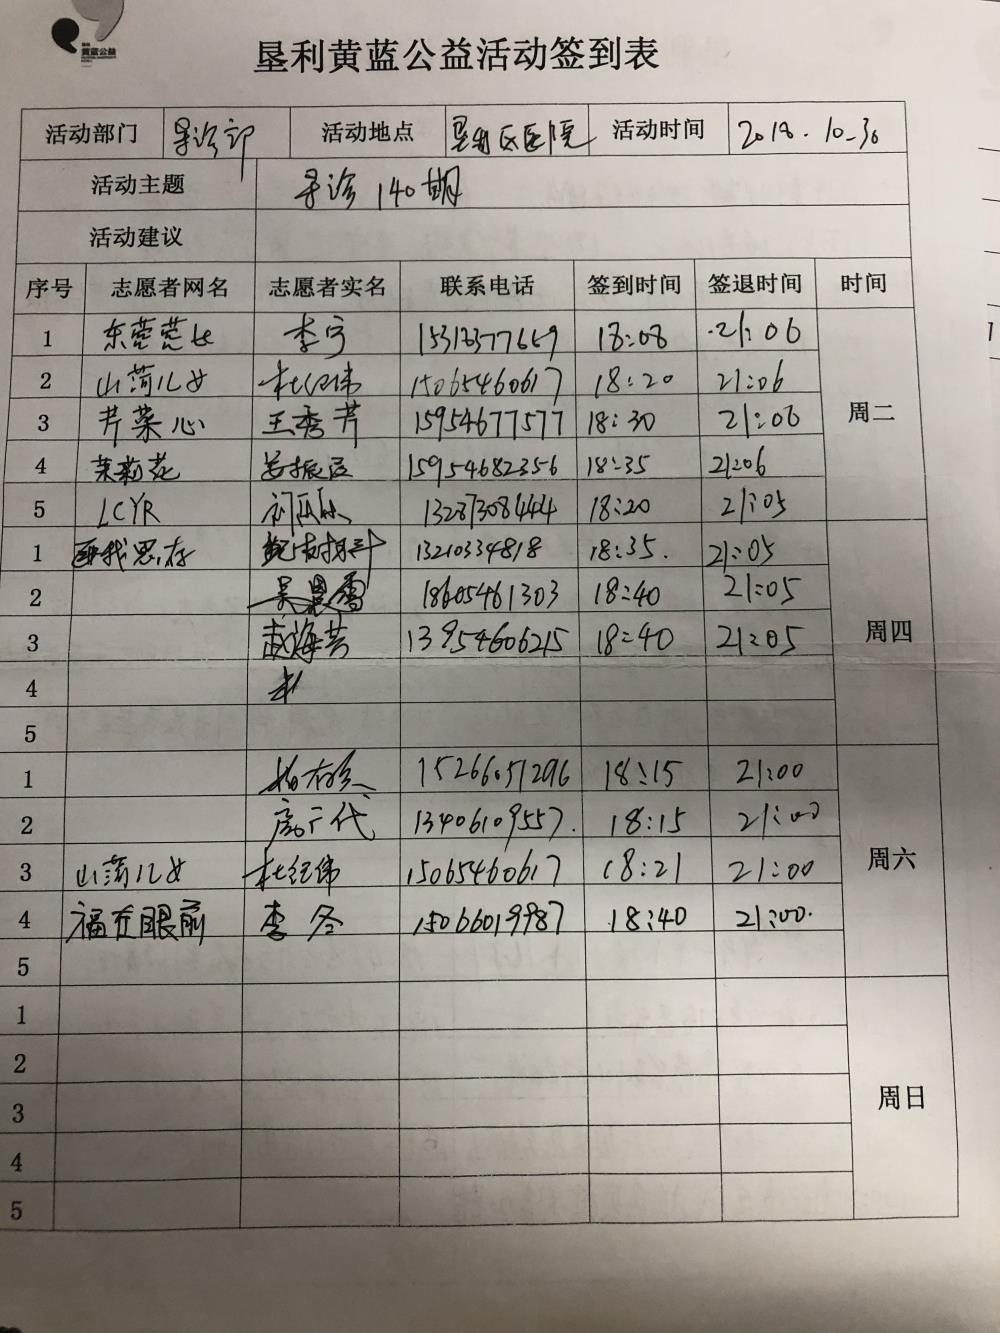 黄蓝公益
垦利黄蓝公益活动签到表
活动部门 导诊部 活动地点 垦利区医院 活动时间 2018.10-30
活动主题 导诊140期
活动建议
序号 志愿者网名 志愿者实名 联系电话 签到时间 签退时间 时间
1 李宁 15318377669 18:08 21:06
2 山菏儿女 杜纪伟 15065460617 18:20 21:06
3 芹菜心 王秀芹 15954677577 18:30 21:06
周二
4 茉莉花 15954682356 18:35 21:06
5 LCYR 13287308444 18:20 21:05
1 我思存 13210334818 18:35. 21:05
2 18605461303 18:40 21:05
3 赵海芳 13954606215 18:40 21:05
周四
4
5
1 15266051296 18:15 21:00
2 庞广代 13406109557. 18:15 21:00
3 山菏儿女 杜纪伟 15065460617 18:21 21:00
周六
4 福在眼前 李冬 15066019987 18:40 21:00.
5
1
2
3
周日
4
5